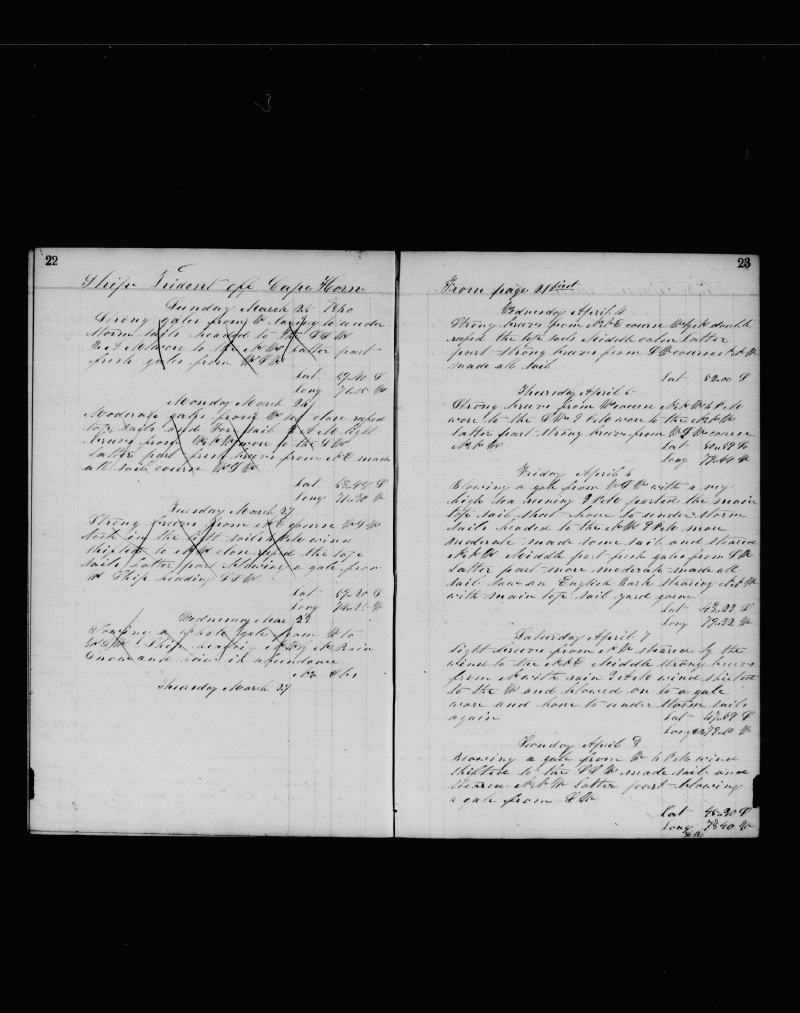 22
Ship Trident off Cape Horn
Sunday March 25
Strong gales from W laying to under
Storm sails headed to the SSW
wore to the latter part
fresh gales from WSW
Lat 57..40 S
Long 71..15 W
Monday March 26
Moderate gales from W close reefed
top sails and Fore sail A M light
braces from wore to the SW
Latter part fresh braces from N E made
all sail course WSW
Lat 58..48 S
Long 74..30 W
Tuesday March 27
Strong breeses from N E course W S W
Took in the light sails P M wind
shifted to close reefed the top
Sails Latter part blowing a gale from
W Ship heading SSW
Lat 57..20 S
Long 74..25 W
Wednesday Mar 28
Blowing a whole gale from W to
WSW Ship heading Rain
Snow and hail in abundance
No Obs
Thursday March 29
23
From page 21
Wednesday April 4
Strong braces from N N E course double
reefed the top sails Middle calm Latter
part strong braces from S W course N N W
made all sail
Lat 52..00 S
Thursday April 5
Strong braces from W course N N W 4 P M
wore to the S W 9 P M wore to the N N W
latter part strong braces from W S W course
N N W
Lat 50..59 S
Long 79..44 W
Friday April 6
Blowing a gale from W S W with a very
high sea runing 2 P M parted the main
top sail sheet hove to under storm
sails headed to the N W 9 P M more
moderate made some sail and steared
N N W Middle part fresh gales from S W
Latter part more moderate made all
sail saw an English Bark stearing N N W
with main top sail yard gorn
Lat 48..22 S
Long 79..32 W
Saturday April 7
Light breeses from N W steared by the
wind to the N N E Middle strong braces
from N with rain 2 A M wind shifted
to the W and blowed on to a gale
wore and hove to under storm sails
again
Lat 47..59 S
Long 79..10 W
Sunday April 8
Blowing a gale from W 4 P M wind
shifted to the S S W made sail and
stearen N N W latter part blowing
a gale from S W
Lat 45..30 S
Long 78..40 W